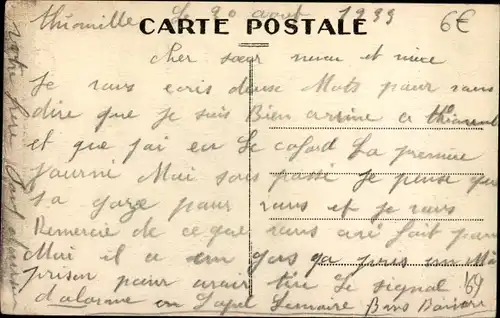 thionville Le 20 aout 1933
CARTE POSTALE
6€
cher soeur neveu et niece
Je vous ecris deux Mots pour vous
dire que Je suis Bien arrive a thionvil
et que jai eu Le cafard La premiere
journé Mai sais passé Je pense que
sa gaze pour vous et Je vous
Remercie de ce que vous avé fait pour
Moi il a un gars qa
prison pour avoir tiré Le signal
dalarme en Bons Baisers
169
votre frere